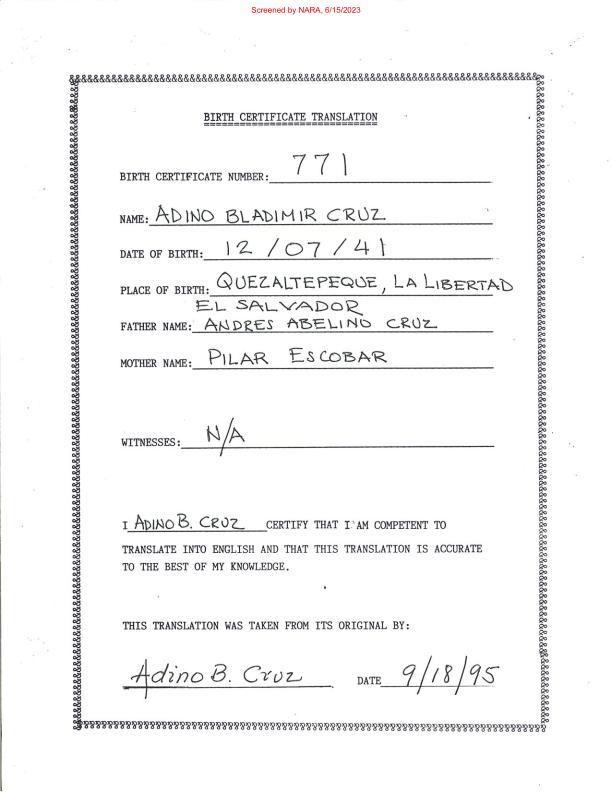 Screened by NARA, 6/15/2023
BIRTH CERTIFICATE TRANSLATION
BIRTH CERTIFICATE NUMBER: 771
NAME: ADINO BLADIMIR CRUZ
DATE OF BIRTH: 12/07/41
PLACE OF BIRTH: QUEZALTEPEQUE, LA LIBERTAD
EL SALVADOR
FATHER NAME: ANDRES ABELINO CRUZ
MOTHER NAME: PILAR ESCOBAR
WITNESSES: N/A
I ADINO B. CRUZ CERTIFY THAT I AM COMPETENT TO
TRANSLATE INTO ENGLISH AND THAT THIS TRANSLATION IS ACCURATE
TO THE BEST OF MY KNOWLEDGE.
THIS TRANSLATION WAS TAKEN FROM ITS ORIGINAL BY:
Adino B. Cruz DATE 9/18/95